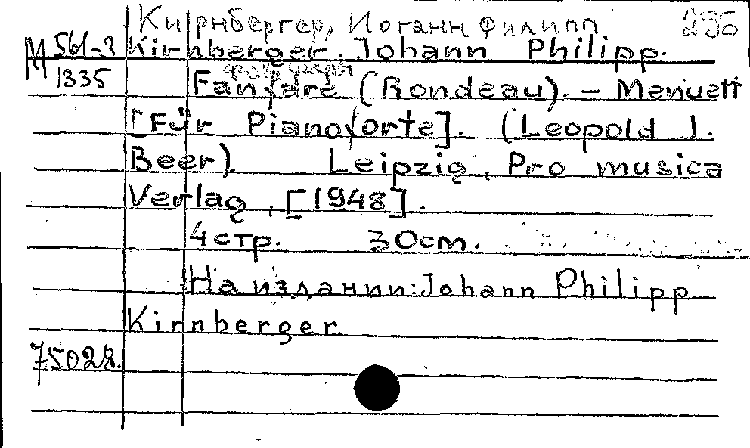 Кирнбергер, Иоганн Филипп.
M 561-3 Kirnberger. Johann Philipp.
1335 Fanfare (Rondeau). – Menuett
[Für Pianoforte]. (Leopold J.
Beer). Leipzig, Pro musica
Verlag, [1948].
4 стр. 30 см.
На издании: Johann Philipp
Kirnberger.
75028.